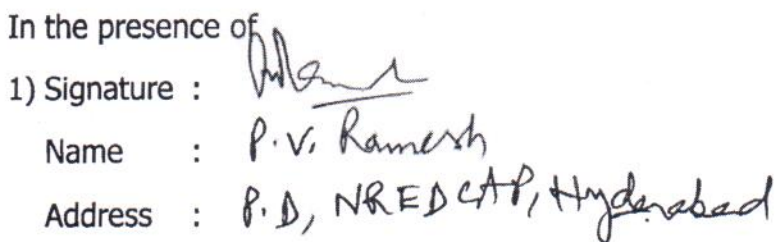 In the presence of
1) Signature :
Name : P.V. Ramesh
Address : P.D, NREDCAP, Hyderabad